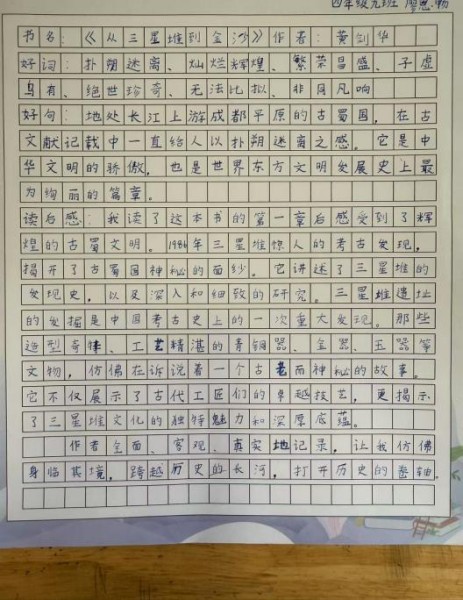 四年级九班 廖思畅
书名:《从三星堆到金沙》作者:黄剑华
好词:扑朔迷离、灿烂辉煌、繁荣昌盛、子虚
乌有、绝世珍奇、无法比拟、非同凡响
好句:地处长江上游成都平原的古蜀国,在古
文献记载中一直给人以扑朔迷离之感。它是中
华文明的骄傲,也是世界东方文明发展史上最
为绚丽的篇章。
读后感:我读了这本书的第一章后感受到了辉
煌的古蜀文明。1986年三星堆惊人的考古发现,
揭开了古蜀国神秘的面纱。它讲述了三星堆的
发现史,以及深入和细致的研究。三星堆遗址
的发掘是中国考古史上的一次重大发现。那些
造型奇特、工艺精湛的青铜器、金器、玉器等
文物,仿佛在诉说着一个古老而神秘的故事。
它不仅展示了古代工匠们的卓越技艺,更揭示
了三星堆文化的独特魅力和深厚底蕴。
作者全面、客观、真实地记录,让我仿佛
身临其境,跨越历史的长河,打开历史的卷轴。